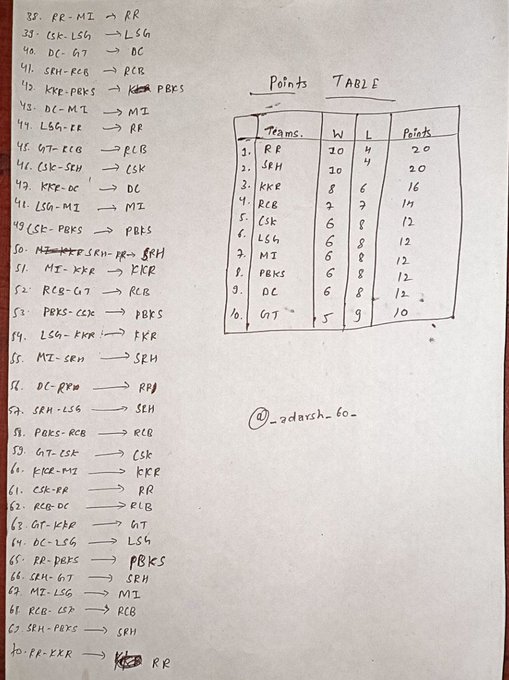 38. RR-MI → RR
39. CSK-LSG → LSG
40. DC-GT → DC
41. SRH-RCB → RCB
42. KKR-PBKS → PBKS
43. DC-MI → MI
44. LSG-RR → RR
45. GT-RCB → RCB
46. CSK-SRH → CSK
47. KKR-DC → DC
48. LSG-MI → MI
49 CSK-PBKS → PBKS
50. SRH-RR → SRH
51. MI-KKR → KKR
52. RCB-GT → RCB
53. PBKS-CSK → PBKS
54. LSG-KKR → KKR
55. MI-SRH → SRH
56. DC-RR → RR
57. SRH-LSG → SRH
58. PBKS-RCB → RCB
59. GT-CSK → CSK
60. KKR-MI → KKR
61. CSK-RR → RR
62. RCB-DC → RCB
63. GT-KKR → GT
64. DC-LSG → LSG
65. RR-PBKS → PBKS
66. SRH-GT → SRH
67. MI-LSG → MI
68. RCB-CSK → RCB
69. SRH-PBKS → SRH
70. RR-KKR → RR
Points TABLE
Teams. W L Points
1. RR 10 4 20
2. SRH 10 4 20
3. KKR 8 6 16
4. RCB 7 7 14
5. CSK 6 8 12
6. LSG 6 8 12
7. MI 6 8 12
8. PBKS 6 8 12
9. DC 6 8 12
10. GT 5 9 10
@_adarsh_60_